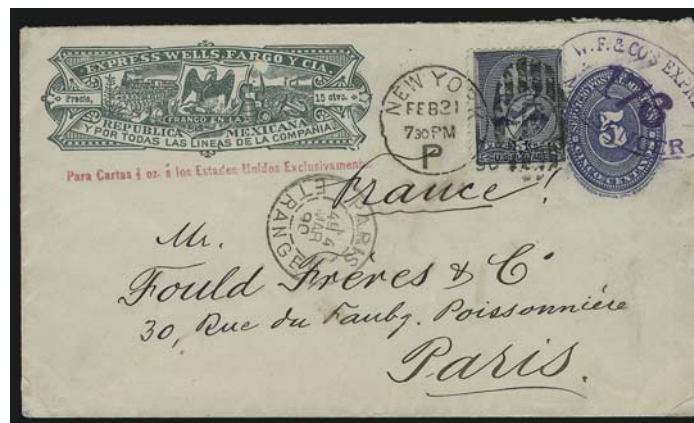 EXPRESS WELLS, FARGO Y CIA.
Precio, 15 ctvo.
FRANCO EN LA
REPUBLICA MEXICANA
Y POR TODAS LAS LINEAS DE LA COMPAÑIA.
Para Cartas ½ oz. á los Estados Unidos Exclusivamente
NEW YORK
FEB 21
730 PM
P
90
W. F. & CO'S EXPR
SERVICIO POSTAL MEXICANO
5
CINCO CENTAVOS
France!
PARIS
4 MAR
90
ETRANGER
Mr.
Fould Frères & Cº
30, Rue du Faubg. Poissonnière
Paris.